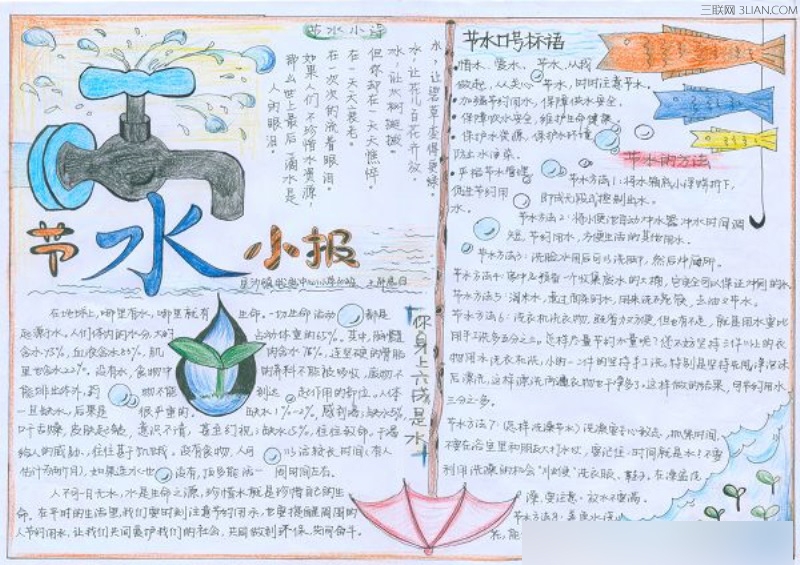 三联网 3LIAN.COM
节水小诗
水，让碧草变得更绿。
水，让花儿百花齐放。
水，让树挺拔。
但你却在一天天憔悴，
在一天天衰老。
在一次次的流着眼泪。
如果人们不珍惜水资源，
那么世上最后一滴水是
人的眼泪。
节水小报
在地球上，哪里有水，哪里就有生命。一切生命活动都是
起源于水，人们体内的水分，大约占动体重的65%。其中，脑髓
含水75%，血液含水83%，肌肉含水76%，连坚硬的骨骼
里也含水22%。没有水，食物中的养料不能被吸收，废物不
能排出体外，药物不能到达起作用的部位。人体
一旦缺水，后果是很严重的。缺水1%-2%，感到渴；缺水5%，
口干舌燥，皮肤起皱，意识不清，甚至幻视；缺水15%，往往致命。于渴
给人的威胁，往往甚于饥饿。没有食物，人可以活较长时间（有人
估计为两个月），如果连水也没有，顶多能活一周时间左右。
人不可一日无水，水是生命之源，珍惜水就是珍惜自己的生
命。在平时的生活里，我们要时刻注意节约用水，也要提醒周围的
人节约用水，让我们共同爱护我们的社会，共同做到环保，共同奋斗。
你身上六成是水
节水口号标语
·惜水、爱水、节水，从我
做起，从关心节水，时时注意节水。
·加强节约用水，保障供水安全。
·保障饮水安全，维护生命健康。
·保护水资源，保护水环境
防止水污染。
·严格节水管理
促进节约用
水。
节水的方法
节水方法1：将水箱的小浮饼拆下，
即成无段式控制出水。
节水方法2：将小便池自动冲水器冲水时间调
短，节约用水，方便生活的其他用水。
节水方法3：洗脸水用后可以洗脚，然后冲厕所。
节水方法4：家中应预备一个收集废水的大桶，它完全可以保证冲厕的水。
节水方法5：淘米水，煮过面条的水，用来洗碗筷，去油又节水。
节水方法6：洗衣机洗衣物，既省力又方便，但也有不足，就是用水量比
用手工洗多五分之二。怎样尽量节约水量呢？您不妨坚持三件以上的衣
物用水洗衣机洗，小的一二件的坚持手工洗，特别是坚持先甩净泡沫
后漂洗，这样漂洗两遍衣物也干净多了。这样做的结果，可节约用水
三分之多。
节水方法7：（怎样洗澡节水）洗澡要专心致志，抓紧时间，
不要在浴室里和朋友大打水仗，要记住，时间就是水！不要
利用洗澡的机会“顺便”洗衣服、鞋子。在澡盆洗
澡，要注意，放水不要满。